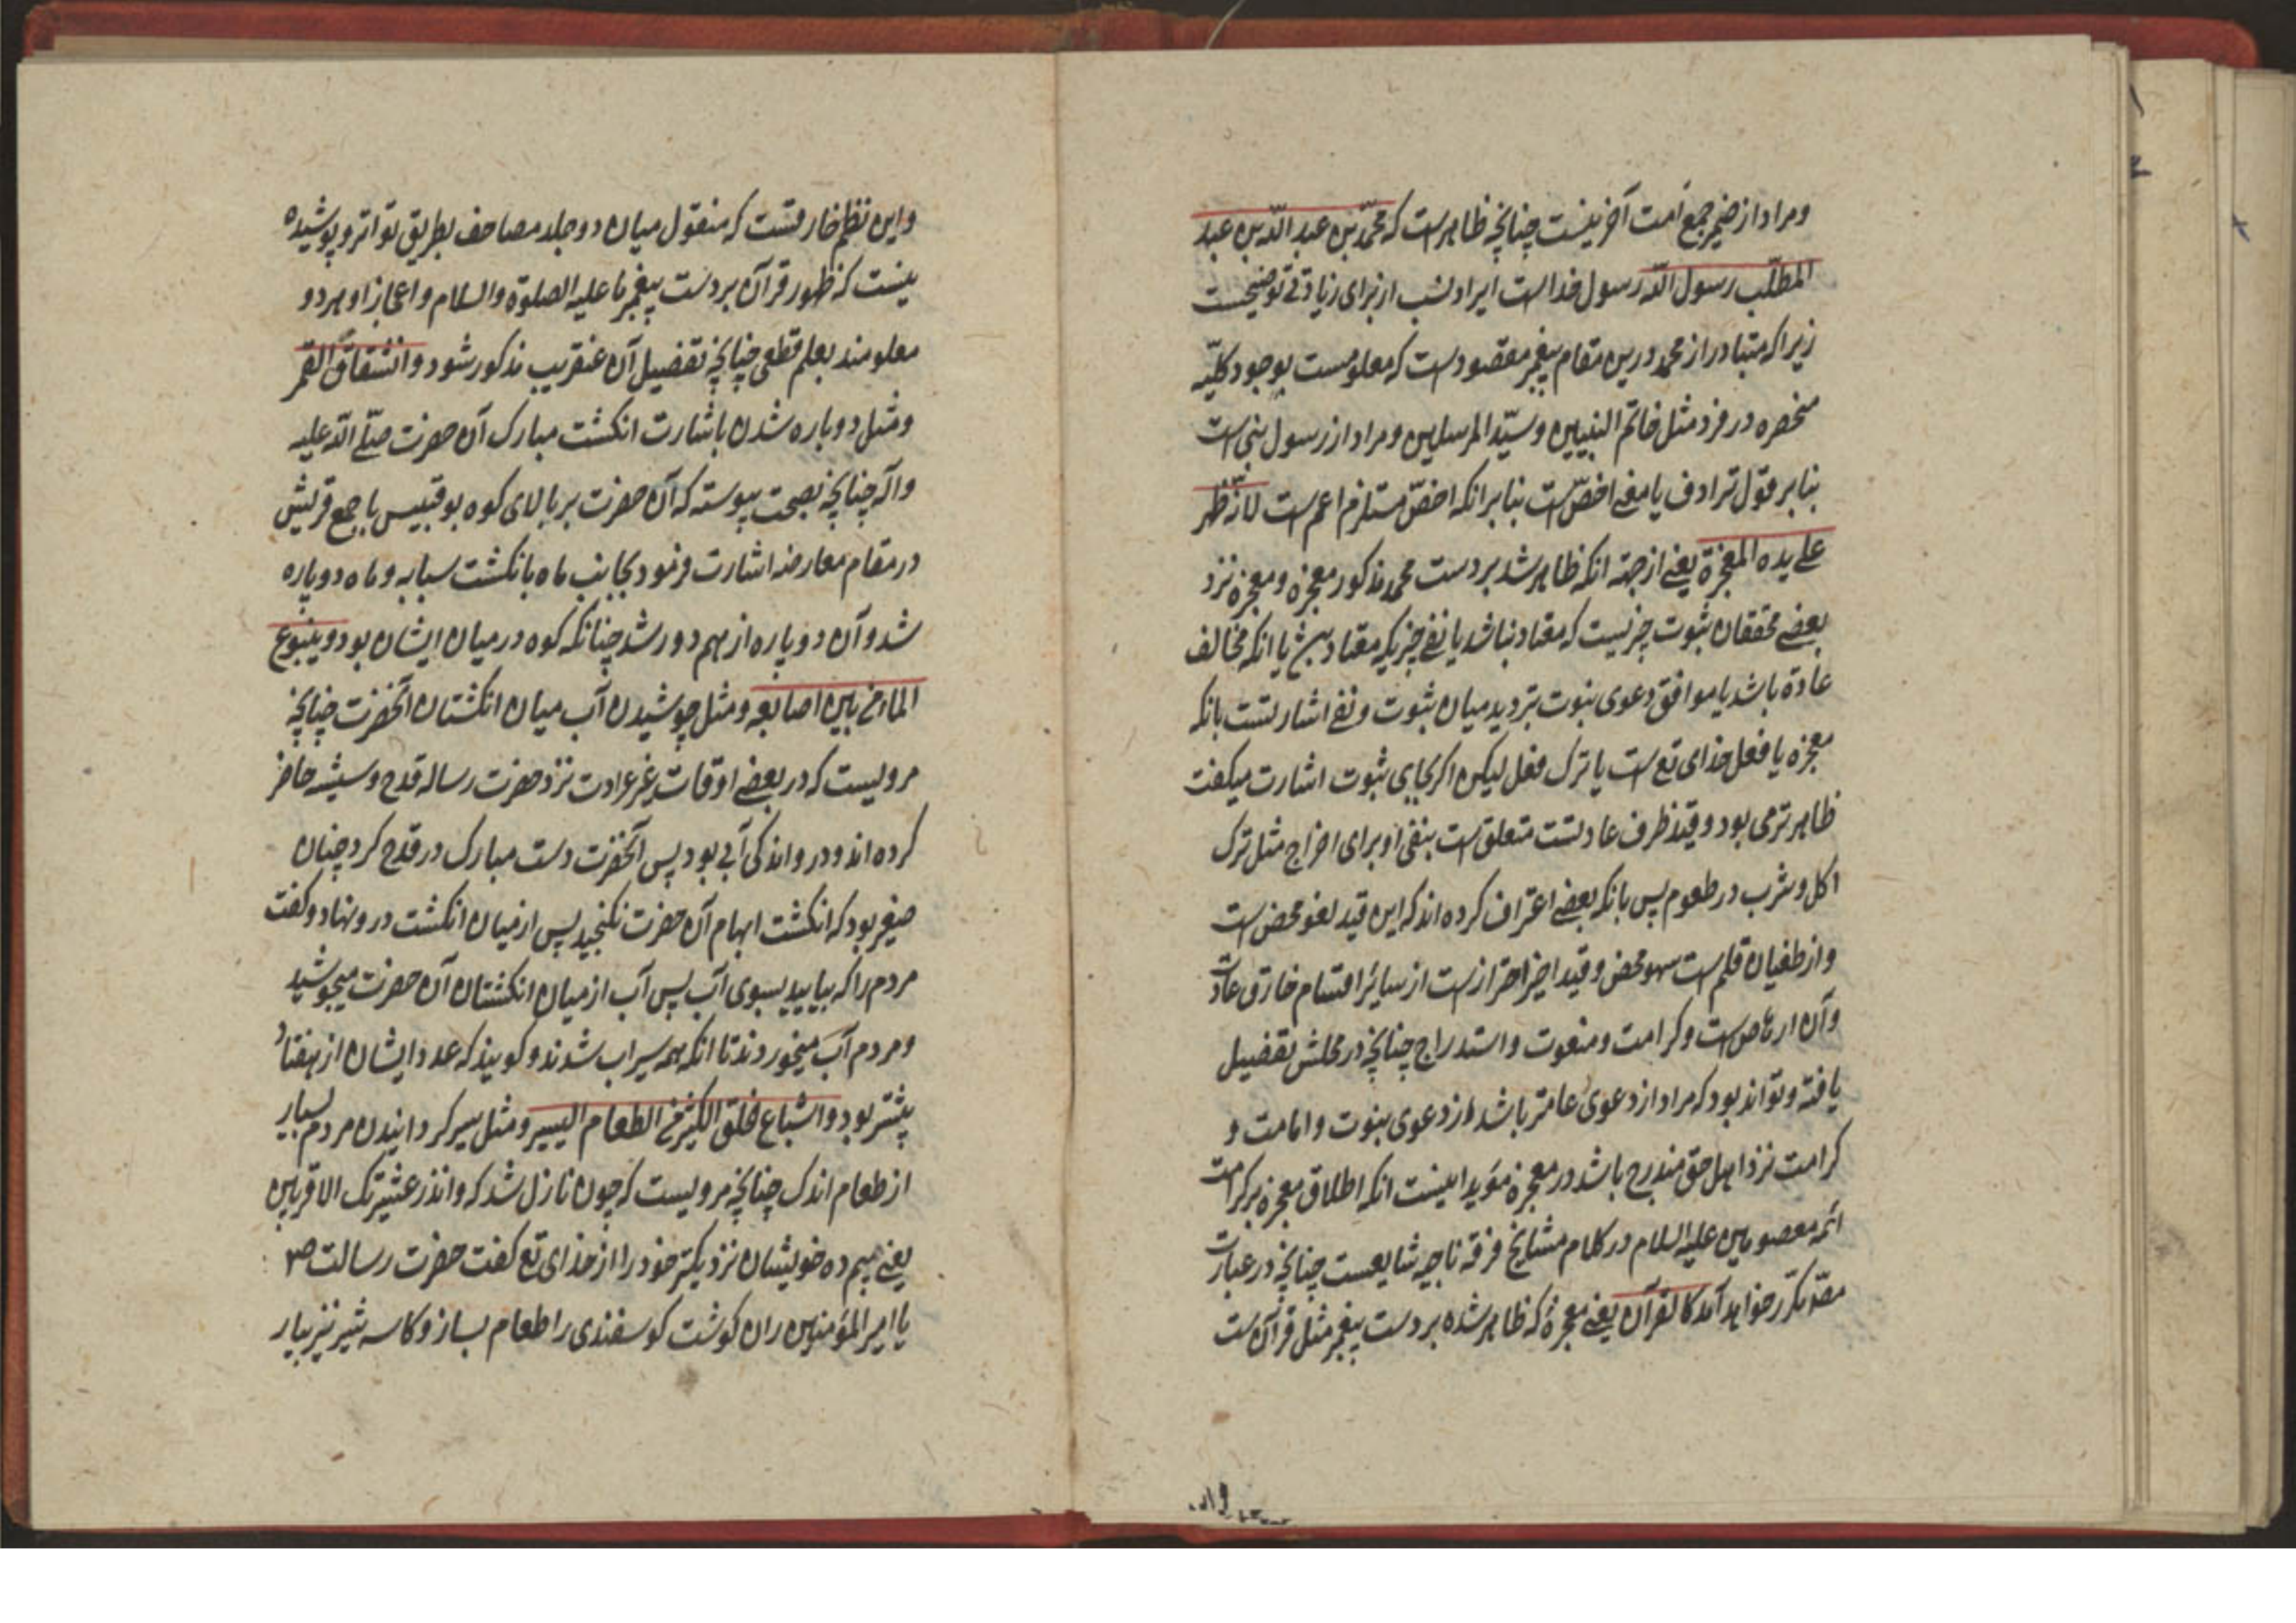 ومراد از ضمیر جمع امت آخرینست چنانچه ظاهرست که محمّد بن عبد الله بن عبد
المطلّب رسول الله رسول خداست ایراد نسب از برای زیادتی توضیحست
زیرا که متبادر از محمد درین مقام پیغمبر مقصودست که معلومست بوجود کلیّه
منحصره در فرد مثل خاتم النبیین وسیّد المرسلین ومراد از رسول نبی است
بنا بر قول ترادف یا معنی اخصّ است بنا بر انکه اخصّ مستلزم اعم است لانّه ظهر
علی یده المعجزة یعنی از جهته انکه ظاهر شد بر دست محمد مذکور معجزه ومعجزه نزد
بعضی محققان ثبوت چیزیست که معتاد نباشد یا نفی چیزیکه معتاد با انکه مخالف
عادة باشد یا موافق دعوی نبوت تردید میان ثبوت ونفی اشارتست بانکه
معجزه یا فعل خدای تع است یا ترک فعل لیکن اگر بجای ثبوت اشارت میکفت
ظاهرتر می بود وقید ظرف عادتست متعلق است بنفی او برای اخراج مثل ترک
اکل وشرب در طعوم پس بانکه بعضی اعتراف کرده اند که این قید لغو محض است
واز طغیان قلم است سهو محض وقید اخیر احتراز ست از سایر اقسام خارق عادت
وآن ارهاص است وکرامت ومنعوت واستدراج چنانچه در محلش تفصیل
یافته وتواند بود که مراد از دعوی عامتر باشد از دعوی نبوت وامامت و
کرامت نزد اهل حق مندرج باشد در معجزه مؤید اینست انکه اطلاق معجزه بر کرامت
ائمه معصومین علیه السلام در کلام مشایخ فرقه ناجیه شایعست چنانچه در عبارت
مصّ مکرّر خواهد آمد کالقرآن یعنی معجزهٔ که ظاهر شده بر دست پیغمبر مثل قرآن ست
واین نظم خارقست که منقول میان دو جلد مصاحف بطریق تواتر وپوشیده
نیست که ظهور قرآن بر دست پیغمبر ما علیه الصلوة والسلام واعجاز او هر دو
معلومند بعلم قطعی چنانچه تفصیل آن عنقریب مذکور شود وانشقاق القمر
ومثل دوپاره شدن باشارت انکشت مبارک آن حضرت صلّی الله علیه
وآله چنانچه بصحت پیوسته که آن حضرت بر بالای کوه بوقبیس با جمع قریش
در مقام معارضه اشارت فرمود بجانب ماه بانکشت سبابه وماه دوپاره
شد وآن دوپاره از هم دور شد چنانکه کوه در میان ایشان بود وینبوع
الماء من بین اصابعه ومثل جوشیدن آب میان انکشتان آنحضرت چنانچه
مرویست که در بعضی اوقات نزد حضرت رساله قدح وشیشه حاضر
کرده اند ودر واندکی آبی بود پس آنحضرت دست مبارک در قدح کرد چنان
صغیر بود که انکشت ابهام آن حضرت نکنجید پس از میان انکشت درو نهاد وکفت
مردم را که بیایید بسوی آب پس آب از میان انکشتان آن حضرت میجوشید
ومردم آب میخوردند تا انکه همه سیراب شدند وکویند که عدد ایشان از هفتاد
بیشتر بود واشباع خلق الکثیر من الطعام الیسیر ومثل سیر کردانیدن مردم بسیار
از طعام اندک چنانچه مرویست که چون نازل شد که وانذر عشیرتک الاقربین
یعنی بیم ده خویشان نزدیکتر خود را از خدای تع کفت حضرت رسالت ص
یا امیر المؤمنین ران کوشت کوسفندی را طعام بساز وکاسه شیر نیز بیار